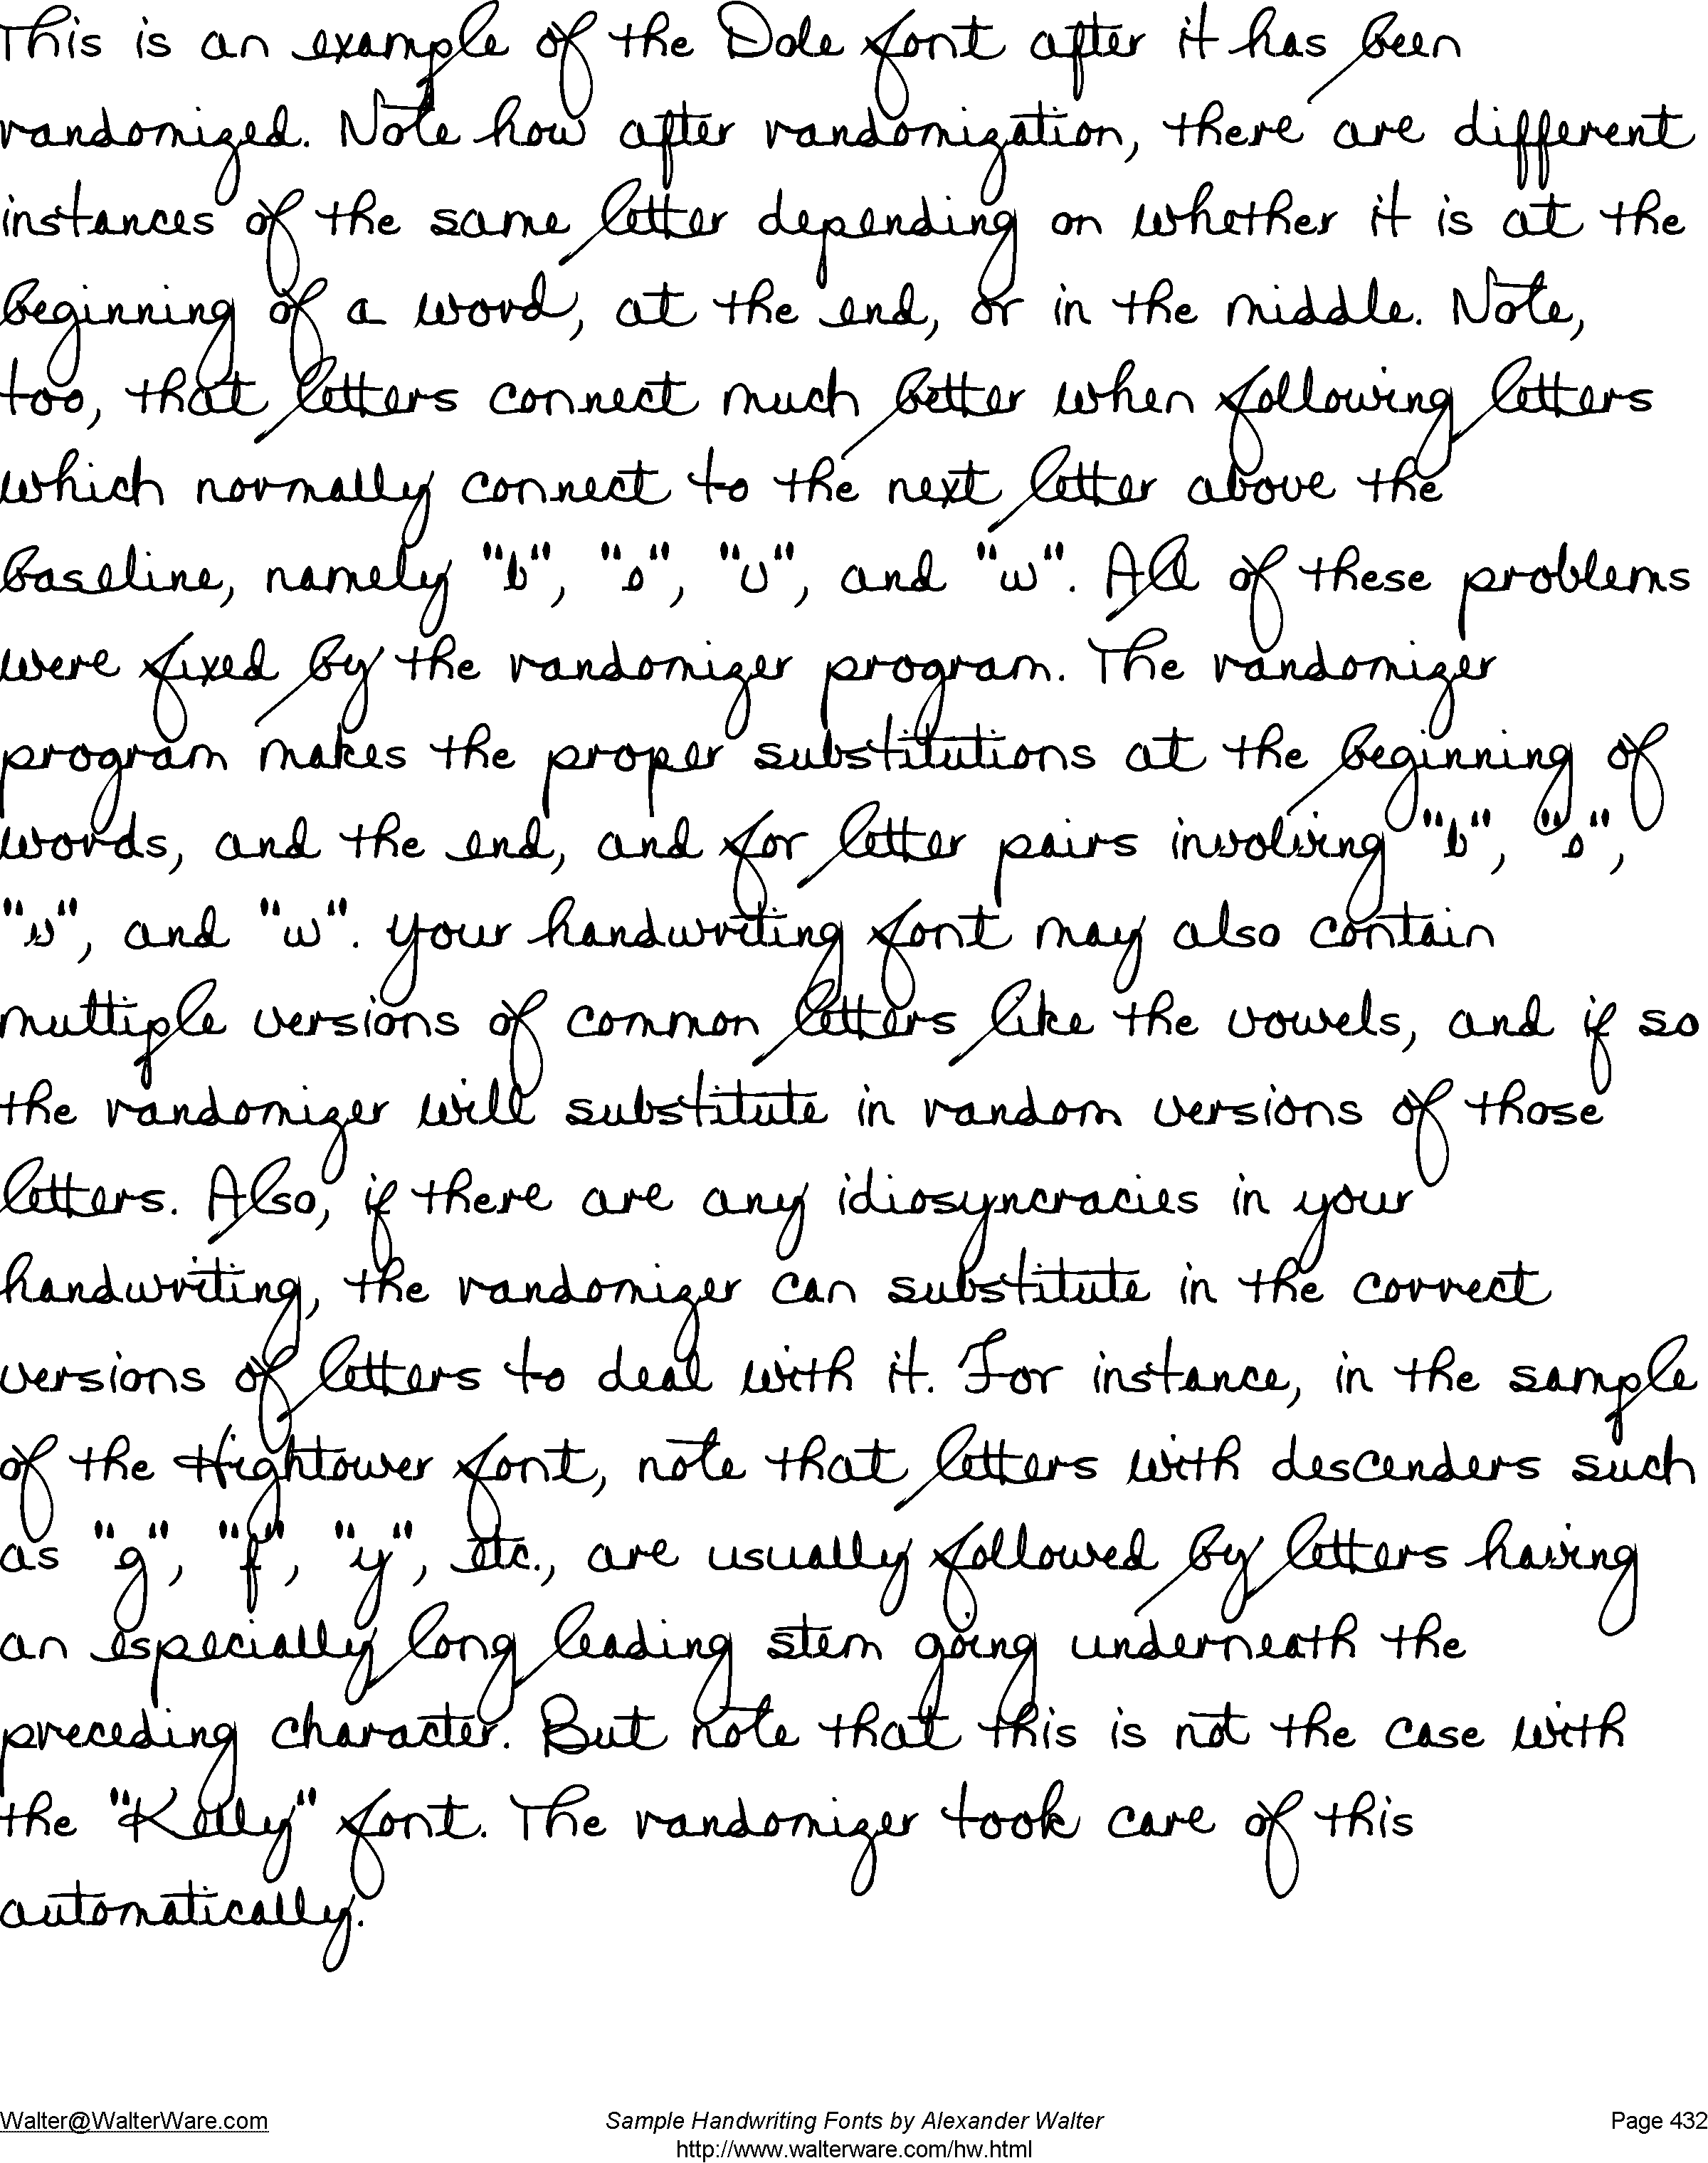 This is an example of the Dole font after it has been
randomized. Note how after randomization, there are different
instances of the same letter depending on whether it is at the
beginning of a word, at the end, or in the middle. Note,
too, that letters connect much better when following letters
which normally connect to the next letter above the
baseline, namely "b", "o", "v", and "w". All of these problems
were fixed by the randomizer program. The randomizer
program makes the proper substitutions at the beginning of
words, and the end, and for letter pairs involving "b", "o",
"v", and "w". Your handwriting font may also contain
multiple versions of common letters like the vowels, and if so
the randomizer will substitute in random versions of those
letters. Also, if there are any idiosyncracies in your
handwriting, the randomizer can substitute in the correct
versions of letters to deal with it. For instance, in the sample
of the Hightower font, note that letters with descenders such
as "g", "f", "y", etc., are usually followed by letters having
an especially long leading stem going underneath the
preceding character. But note that this is not the case with
the "Kelly" font. The randomizer took care of this
automatically.
Walter@WalterWare.com Sample Handwriting Fonts by Alexander Walter Page 432
http://www.walterware.com/hw.html